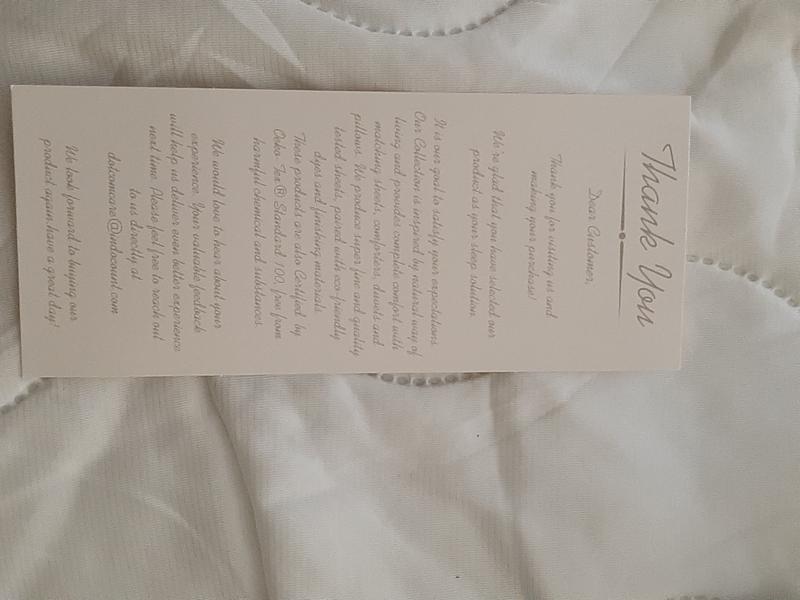 Thank You
Dear Customer,
Thank you for visiting us and
making your purchase!
We're glad that you have selected our
product as your sleep solution.
It is our goal to satisfy your expectations.
Our Collection is inspired by natural way of
living and provides complete comfort with
matching sheets, comforters, duvets and
pillows. We produce super fine and quality
tested sheets, paired with eco-friendly
dyes and finishing materials.
These products are also Certified by
Oeko-Tex® Standard 100, free from
harmful chemical and substances.
We would love to hear about your
experience. Your valuable feedback
will help us deliver even better experience
next time. Please feel free to reach out
to us directly at
dotcomcare@indocount.com
We look forward to buying our
product again have a great day!